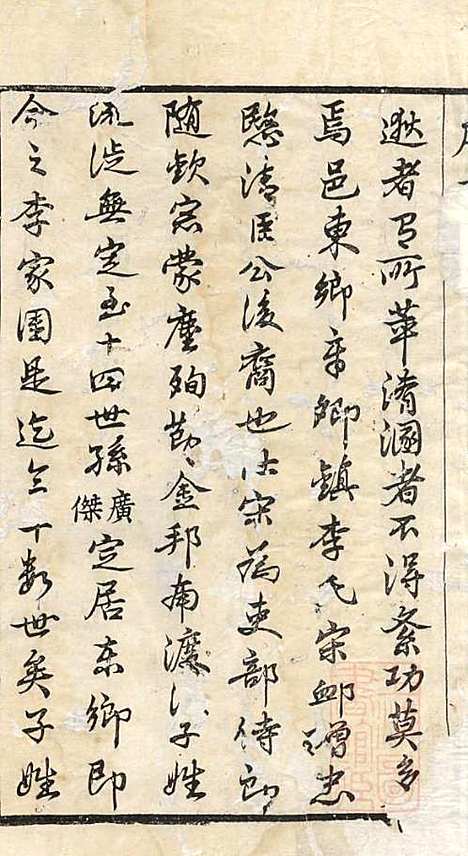 逖者有所萃淆溷者不得紊功莫多
焉邑東鄉章卿鎮李氏宋卹贈忠
愍清臣公後裔也仕宋為吏部侍郎
随欽宗蒙塵殉節金邦南渡後子姓
流徙無定至十四世孫廣傑定居東鄉即
今之李家圍是迄今十数世矣子姓